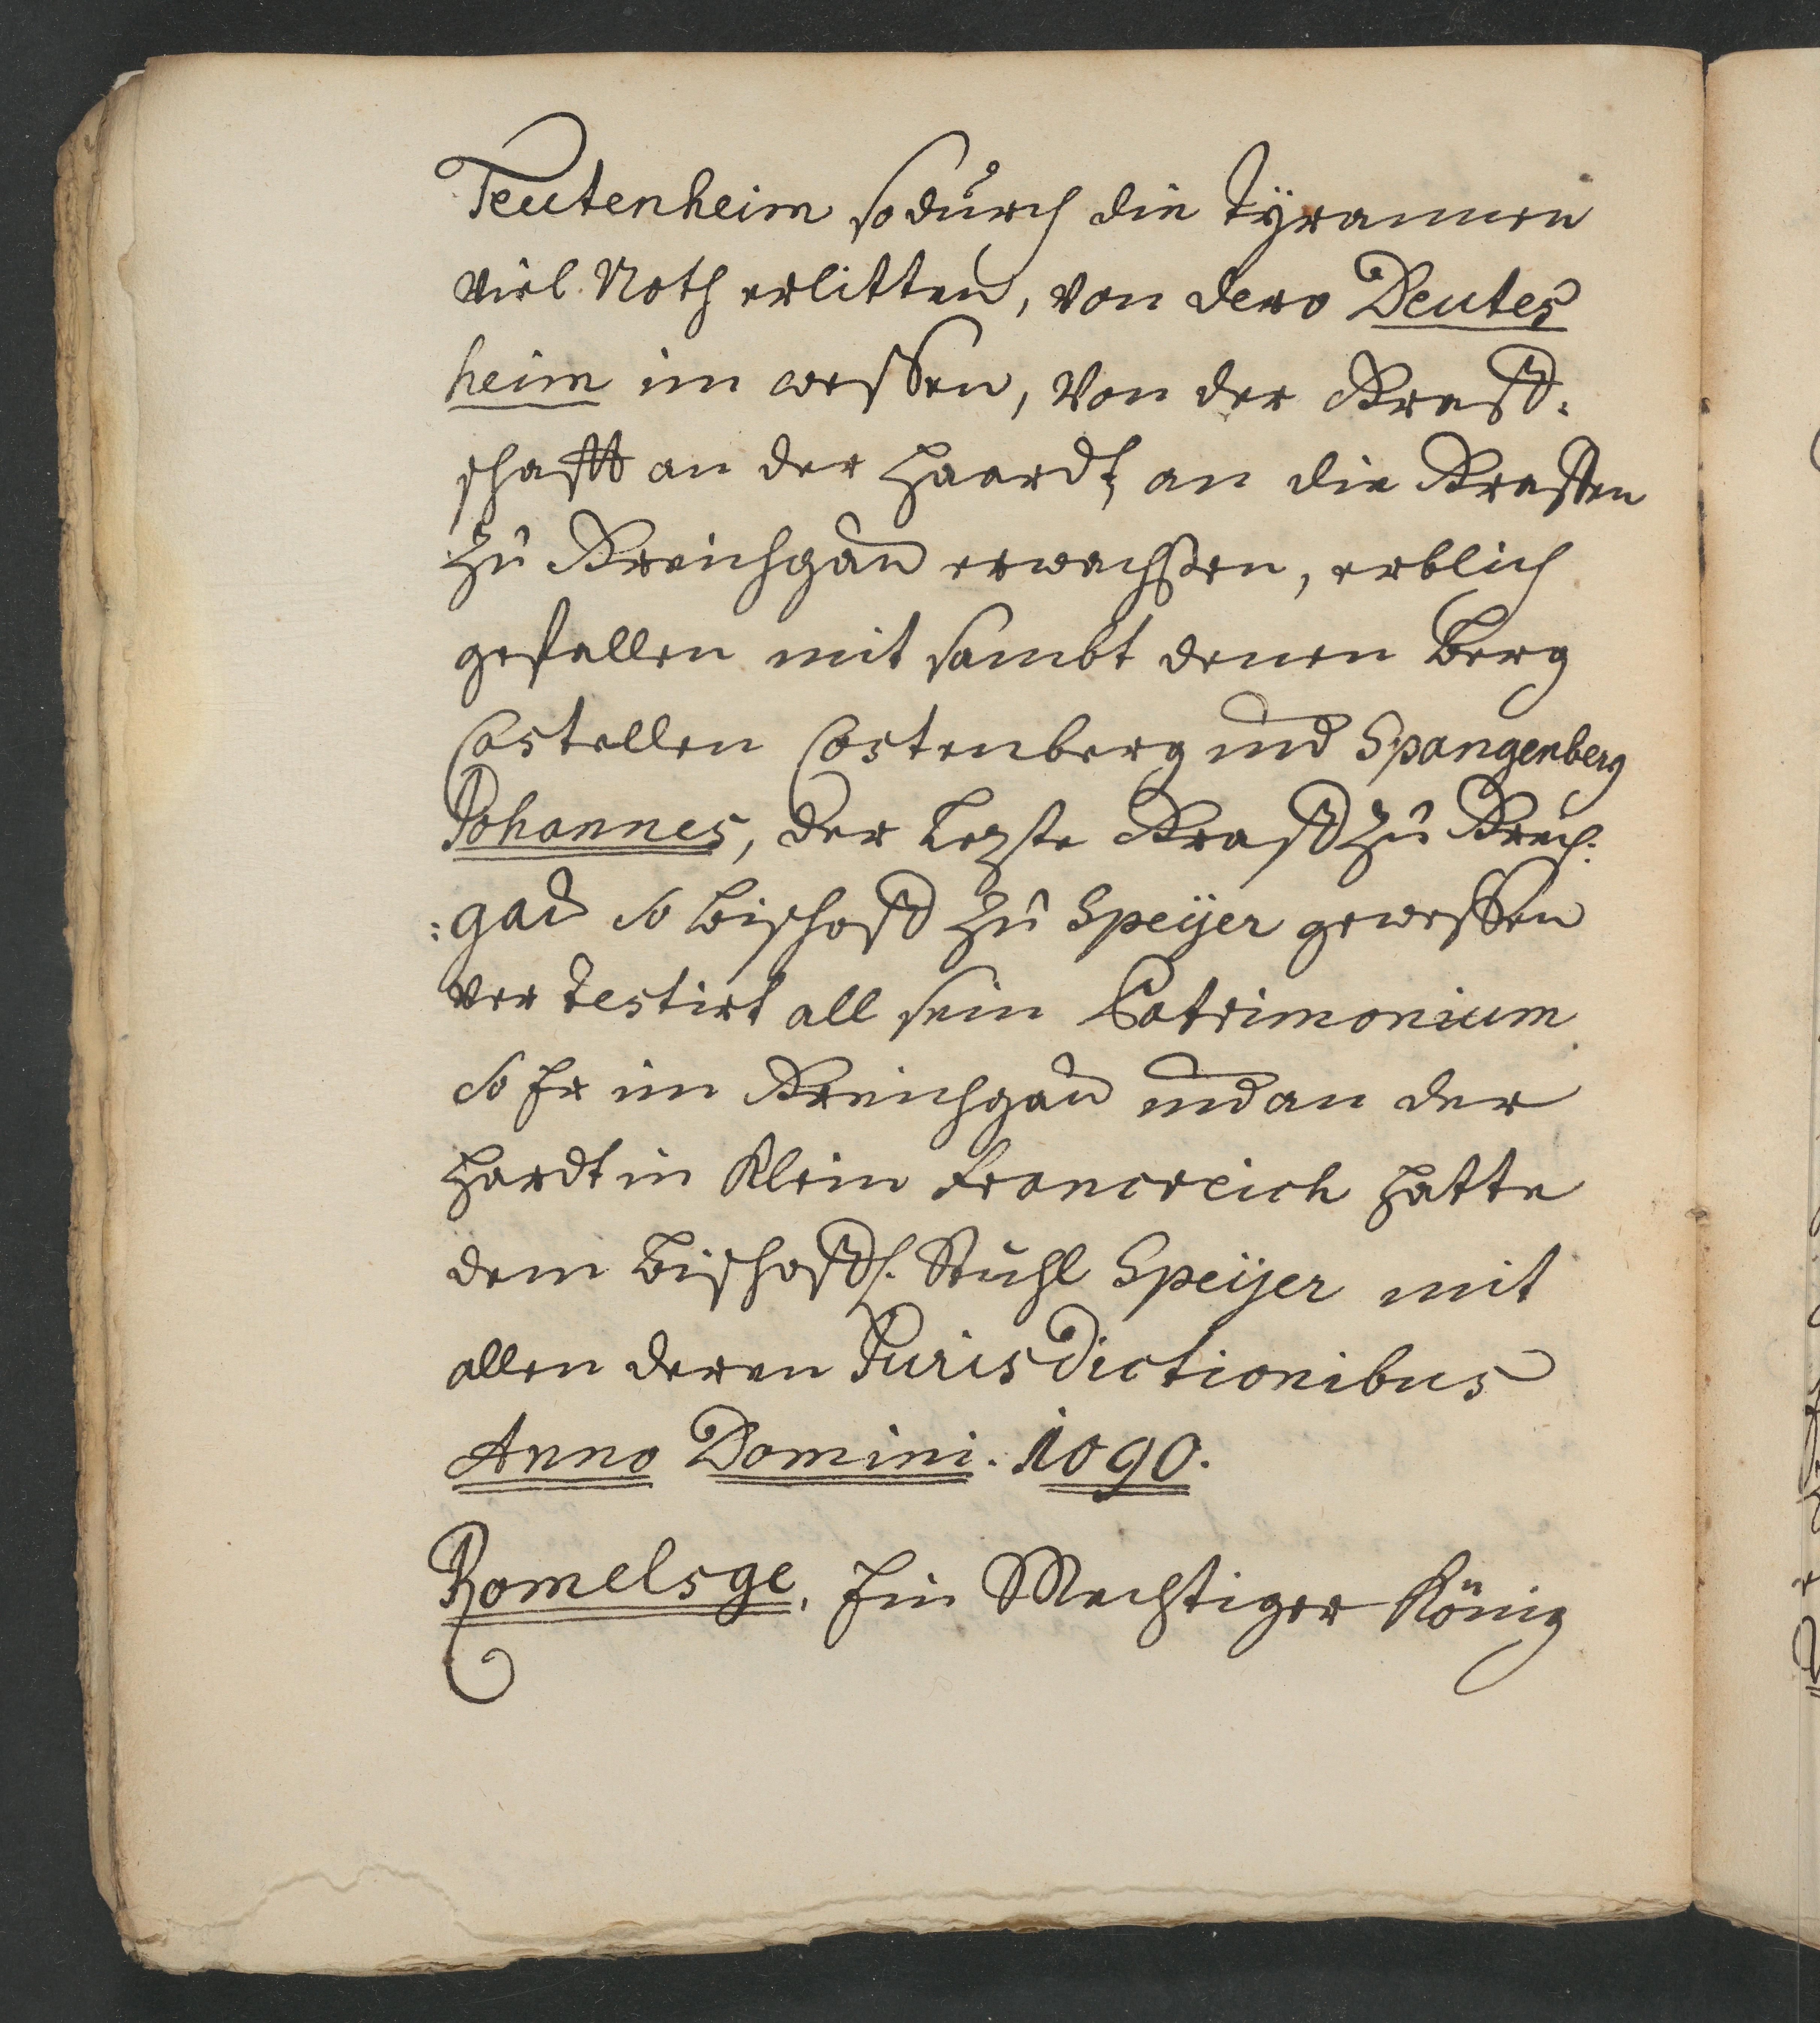 Teutenheim so durch die Tÿrannen
viel Noth erlitten, von dero Deutes
heim im wessen, von der Kraff¬
schafft an der Haardt, an die Kraffen
zu Kreichgau erwachssen, erblich
gefallen mit sambt denen Berg
Castellen Castenberg und Spangenberg
Johannes, der Letzte Kraff zu Kreich:
:gau so Bischoff zu Speÿer gewessen
ver testirt all sein Patrimonium
so Er im Kreichgau und an der
Hardt in Klein Francreich hatte
dem Bischoffl. Stuhl Speÿer mit
allen deren Jurisdictionibus
Anno Domini. 1090.
Romelsge. Ein Mechtiger König